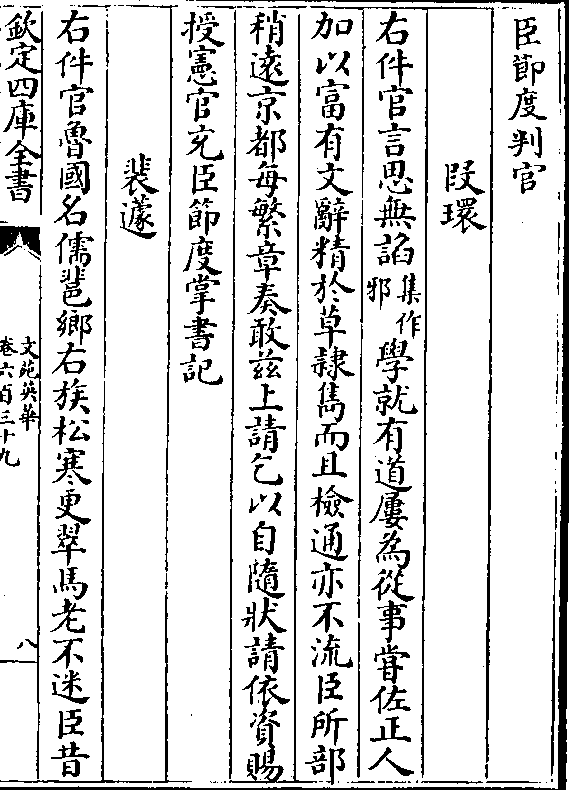 臣節度判官
段瓌
右件官言思無諂集作邪學就有道屢為從事嘗佐正人
加以富有文辭精於草隷雋而且檢通亦不流臣所部
稍遠京都每繁章奏敢兹上請乞以自隨狀請依資賜
授憲官充臣節度掌書記
裴蘧
右件官魯國名儒邕鄉右族松寒更翠馬老不迷臣昔
欽定四庫全書
文苑英華
卷六百三十九
八